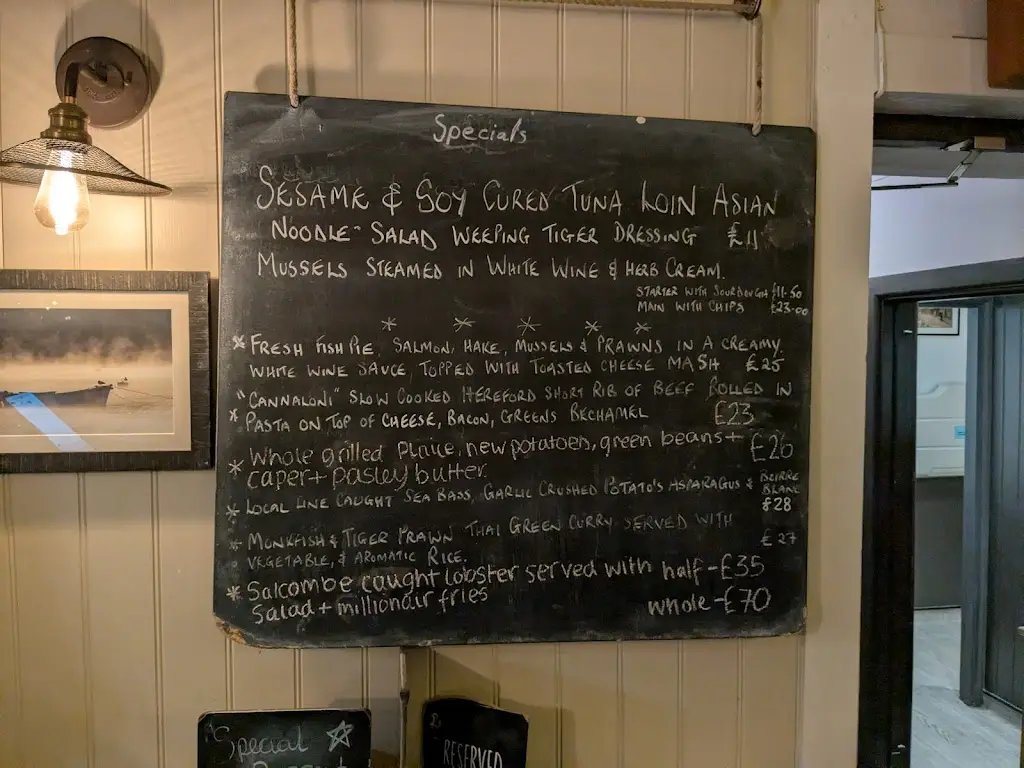 Specials
SESAME & SOY CURED TUNA LOIN ASIAN
NOODLE SALAD WEEPING TIGER DRESSING £11
MUSSELS STEAMED IN WHITE WINE & HERB CREAM.
STARTER WITH SOURDOUGH £11.50
MAIN WITH CHIPS £23.00
* * * * *
* FRESH FISH PIE, SALMON, HAKE, MUSSELS & PRAWNS IN A CREAMY,
WHITE WINE SAUCE, TOPPED WITH TOASTED CHEESE MASH £25
"CANNALONI" SLOW COOKED HEREFORD SHORT RIB OF BEEF ROLLED IN
* PASTA ON TOP OF CHEESE, BACON, GREENS BECHAMEL £23
Whole grilled Plaice, new potatoes, green beans + £26
* caper + pasley butter
* LOCAL LINE CAUGHT SEA BASS, GARLIC CRUSHED POTATO'S ASPARAGUS & BEURRE BLANC
£28
* MONKFISH & TIGER PRAWN THAI GREEN CURRY SERVED WITH £27
VEGETABLE, & AROMATIC RICE.
* Salcombe caught lobster served with half - £35
Salad + millionair fries whole - £70
Special
RESERVED